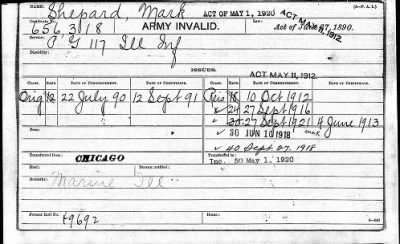 NAME. ACT OF MAY 1, 1920 (O.-P. A. I.)
Shepard, Mark ACT MAY 11, 1912.
Certificate No. ARMY INVALID. Act of June 27, 1890.
656318
C & G 117 Ill Inf
Disability:
ISSUES. ACT MAY 11, 1912.
CLASS. RATE. DATE OF COMMENCEMENT. DATE OF CERTIFICATE. CLASS. RATE. DATE OF COMMENCEMENT. DATE OF CERTIFICATE.
Orig 12 22 July 90 12 Sept 91 18 10 Oct 1912
24 27 Sept 1916
30 27 Sept 1921 4 June 1913
30 JUN 10 1918 max
40 Sept 27. 1918
Transferred from Death notified Transferred to
CHICAGO Inc. 50 May 1, 1920
Remarks:
Marine Ill
Former Roll No.
49692